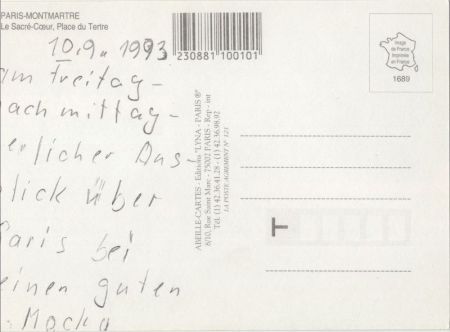 PARIS-MONTMARTRE
Le Sacré-Cœur, Place du Tertre
10.9. 1993
230881 100101
am Freitag-
nachmittag-
erlicher Aus-
blick über
Paris bei
einen guten
Mocka
ABEILLE-CARTES - Editions "LYNA - PARIS ®"
8/10, Rue Saint Marc - 75002 PARIS - Rep - int
Tél. (1) 42.36.41.28 - (1) 42.36.98.92
LA POSTE AGREMENT N° 121
Image
de France
Imprimée
en France
1689